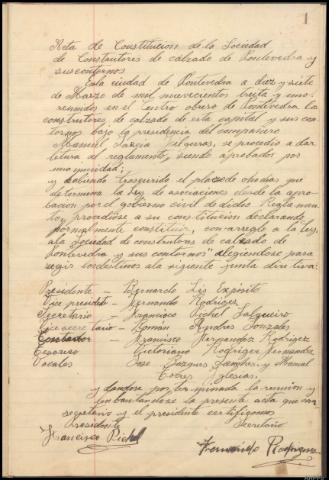 1
Acta de Constitucion de la Sociedad
de Constructores de calzado de Pontevedra y
sus contornos
En la ciudad de Pontevedra a diez y siete
de Marzo de mil novecientos treinta y uno
reunidos en el Centro obrero de Pontevedra los
constructores de calzado de esta capital y sus con
tornos bajo la presidencia del compañero
Manuel Garcia Filgueras, se procedio a dar
letura al reglamento, siendo aprobados por
unanimidad;
y habiendo trascurrido el plazo de ohodias que
determina la Ley de asociaciones desde la apro
bacion por el gobierno civil de dichos Reglamen
to, procediose a su constitución declarando
formalmente constituida, con arreglo a la Ley,
a la Sociedad de constructores de calzado de
Pontevedra y sus contornos eligiendose para
regir sus destinos a la siguiente junta diretiva:
Presidente — Bernardo Lis Expósito
Vice presidente — Fernando Rodrigez
Secretario — Francisco Pichel Salgueiro
Vice secretario — Román Andres Gonzales
Contador — Francisco Fernandez Rodrigez
Tesorero — Victoriano Rodrigez Fernandez
Vocales — Jose Sanchez y Manuel
Torres Iglesias
y dandose por terminada la reunion y
la presente acta que como
secretario y el presidente certificamos
Presidente Secretario
Francisco Pichel
Fernando Rodriguez